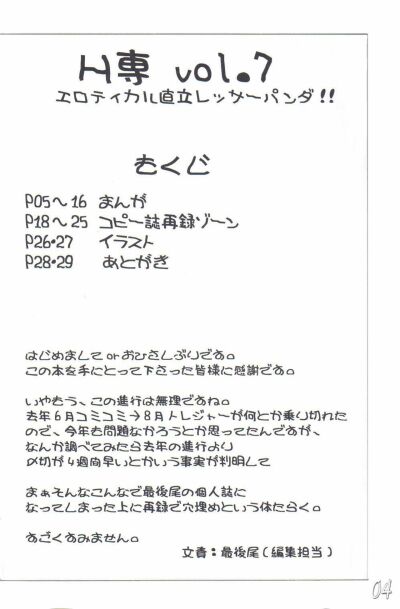 H専 vol.7
エロティカル直立レッサーパンダ!!
もくじ
P05〜16 まんが
P18〜25 コピー誌再録ゾーン
P26・27 イラスト
P28・29 あとがき
はじめまして or おひさしぶりです。
この本を手にとって下さった皆様に感謝です。
いやもう、この進行は無理ですね。
去年6月コミコミ→8月トレジャーが何とか乗り切れた
ので、今年も問題なかろうとか思ってたんですが、
なんか調べてみたら去年の進行より
〆切が4週尚早いとかいう事実が判明して
まぁそんなこんなで最後尾の個人誌に
なってしまった上に再録で穴埋めという体たらく。
すごくすみません。
文責:最後尾(編集担当)
04